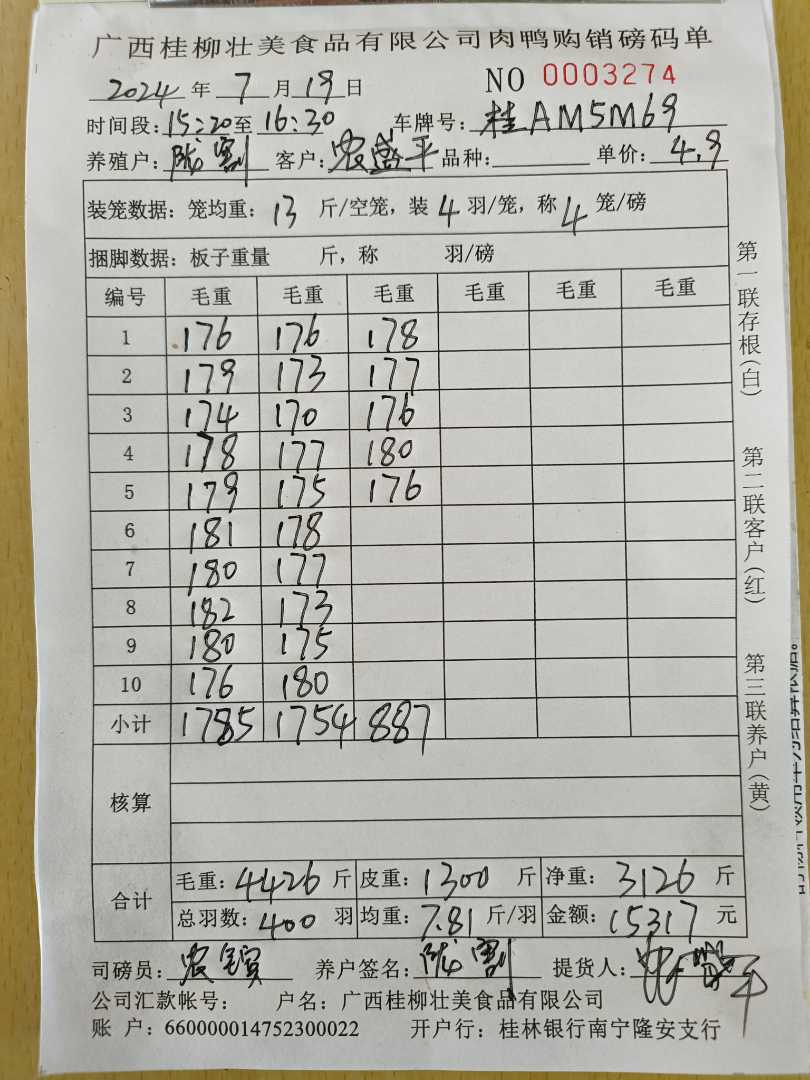 广西桂柳壮美食品有限公司肉鸭购销磅码单
2024年7月19日 NO 0003274
时间段:15:20至16:30 车牌号:桂AM5M69
养殖户: 客户:农盛平 品种: 单价:4.9
装笼数据:笼均重:13斤/空笼,装4羽/笼,称4笼/磅
捆脚数据:板子重量 斤,称 羽/磅
编号 毛重 毛重 毛重 毛重 毛重 毛重
1 176 176 178
2 179 173 177
3 174 170 176
4 178 177 180
5 179 175 176
6 181 178
7 180 177
8 182 173
9 180 175
10 176 180
小计 1785 1754 887
核算
合计
毛重:4426斤 皮重:1300斤 净重:3126斤
总羽数:400羽 均重:7.81斤/羽 金额:15317元
司磅员:农 养户签名: 提货人:
公司汇款帐号: 户名:广西桂柳壮美食品有限公司
账 户:660000014752300022 开户行:桂林银行南宁隆安支行
第一联存根(白)
第二联客户(红)
第三联养户(黄)